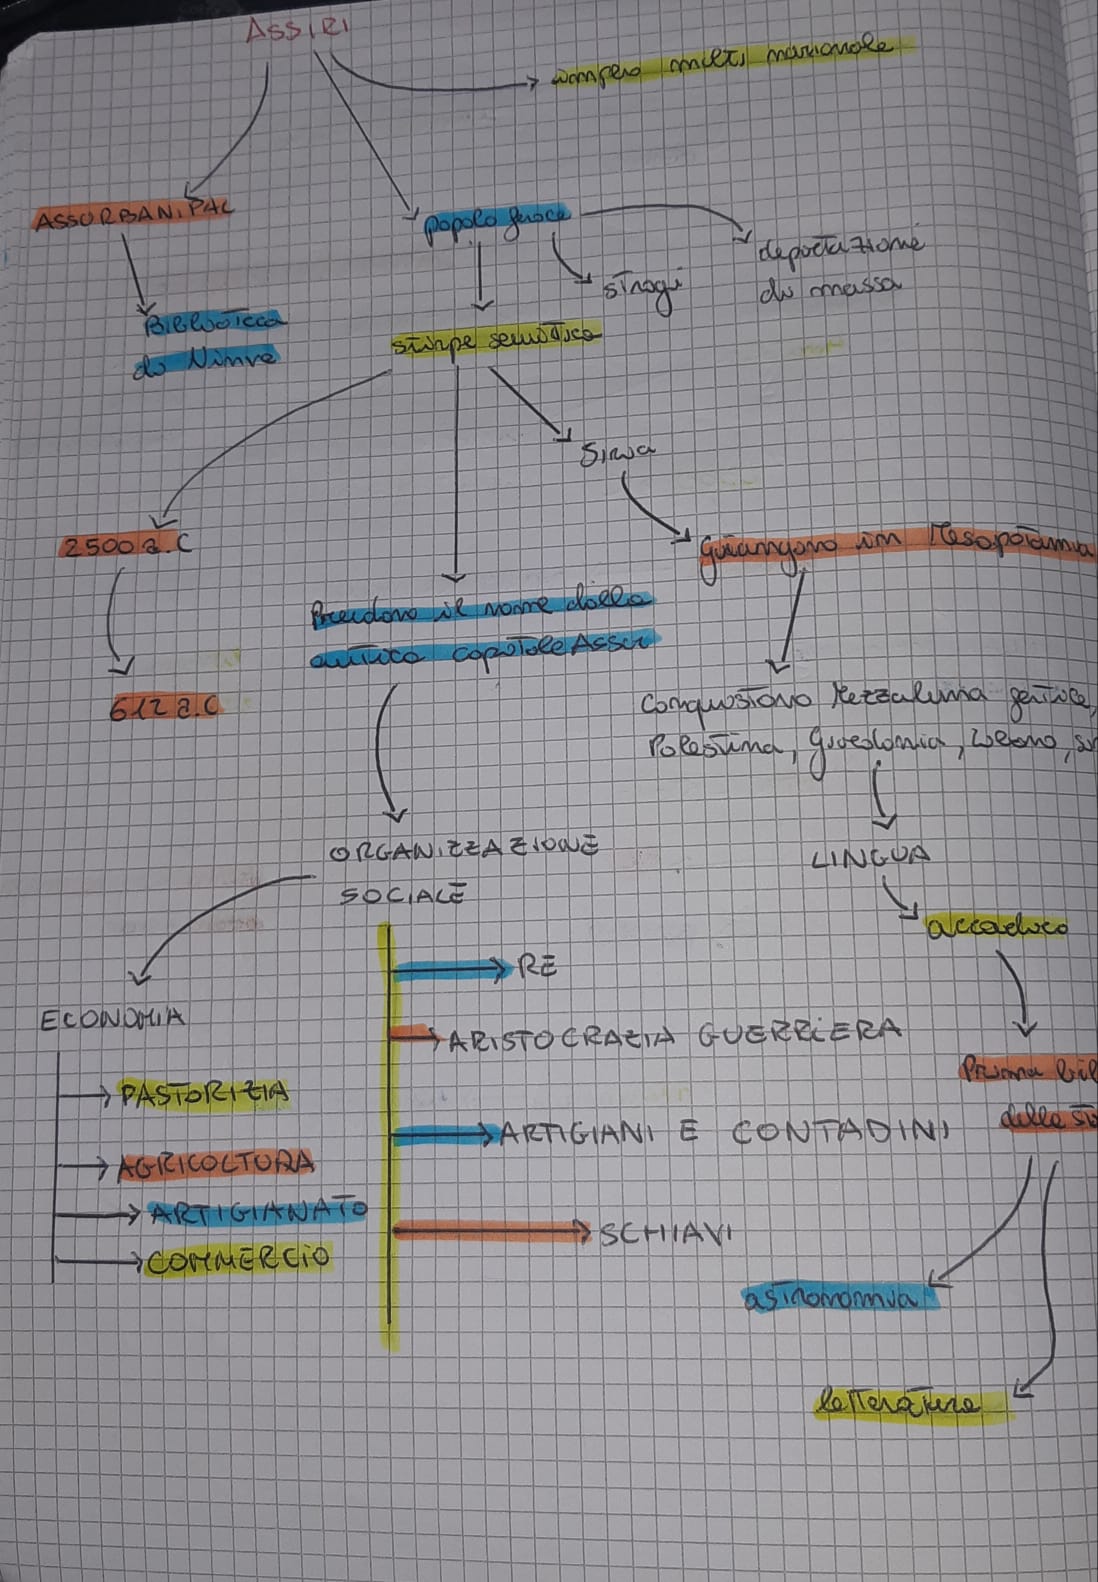 ASSIRI
impero multi nazionale
ASSURBANIPAL
popolo feroce
deportazione
di massa
stragi
Biblioteca
di Ninive
stirpe semitica
Siria
2500 a.C
Giungono in Mesopotamia
Prendono il nome dalla
antica capitale Assur
612 a.C
Conquistano Mezzaluna fertile,
Palestina, Giudea, Libano,
ORGANIZZAZIONE
SOCIALE
LINGUA
accadico
RE
ECONOMIA
ARISTOCRAZIA GUERRIERA
Prima bib
della st
PASTORIZIA
ARTIGIANI E CONTADINI
AGRICOLTURA
ARTIGIANATO
SCHIAVI
COMMERCIO
astronomia
letteratura